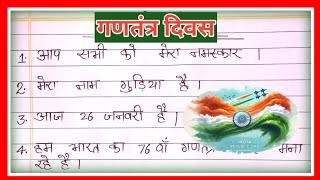 गणतंत्र दिवस
1. आप सभी को मेरा नमस्कार ।
2. मेरा नाम गुड़िया है ।
3. आज 26 जनवरी है ।
4. हम भारत का 76 वाँ मना
रहे है ।